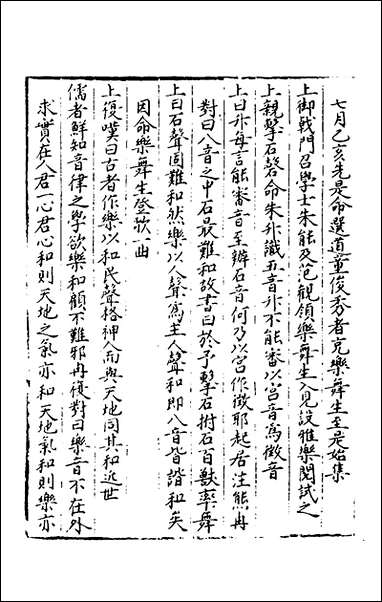 七月乙亥先是命選道童俊秀者充樂舞生至是始集
上御戟門召學士朱升及范觀領樂舞生入見設雅樂閱試之
上親擊石磬命朱升識五音升不能審以宮音爲徵音
上曰升每言能審音至辨石音何乃以宮作徵邪起居注熊鼎
對曰八音之中石最難和故書曰於予擊石拊石百獸率舞
上曰石聲固難和然樂以人聲爲主人聲和即八音皆諧和矣
因命樂舞生登歌一曲
上復嘆曰古者作樂以和民聲格神人而與天地同其和近世
儒者鮮知音律之學欲樂和顧不難邪鼎復對曰樂音不在外
求實在人君一心君心和則天地之氣亦和天地氣和則樂亦